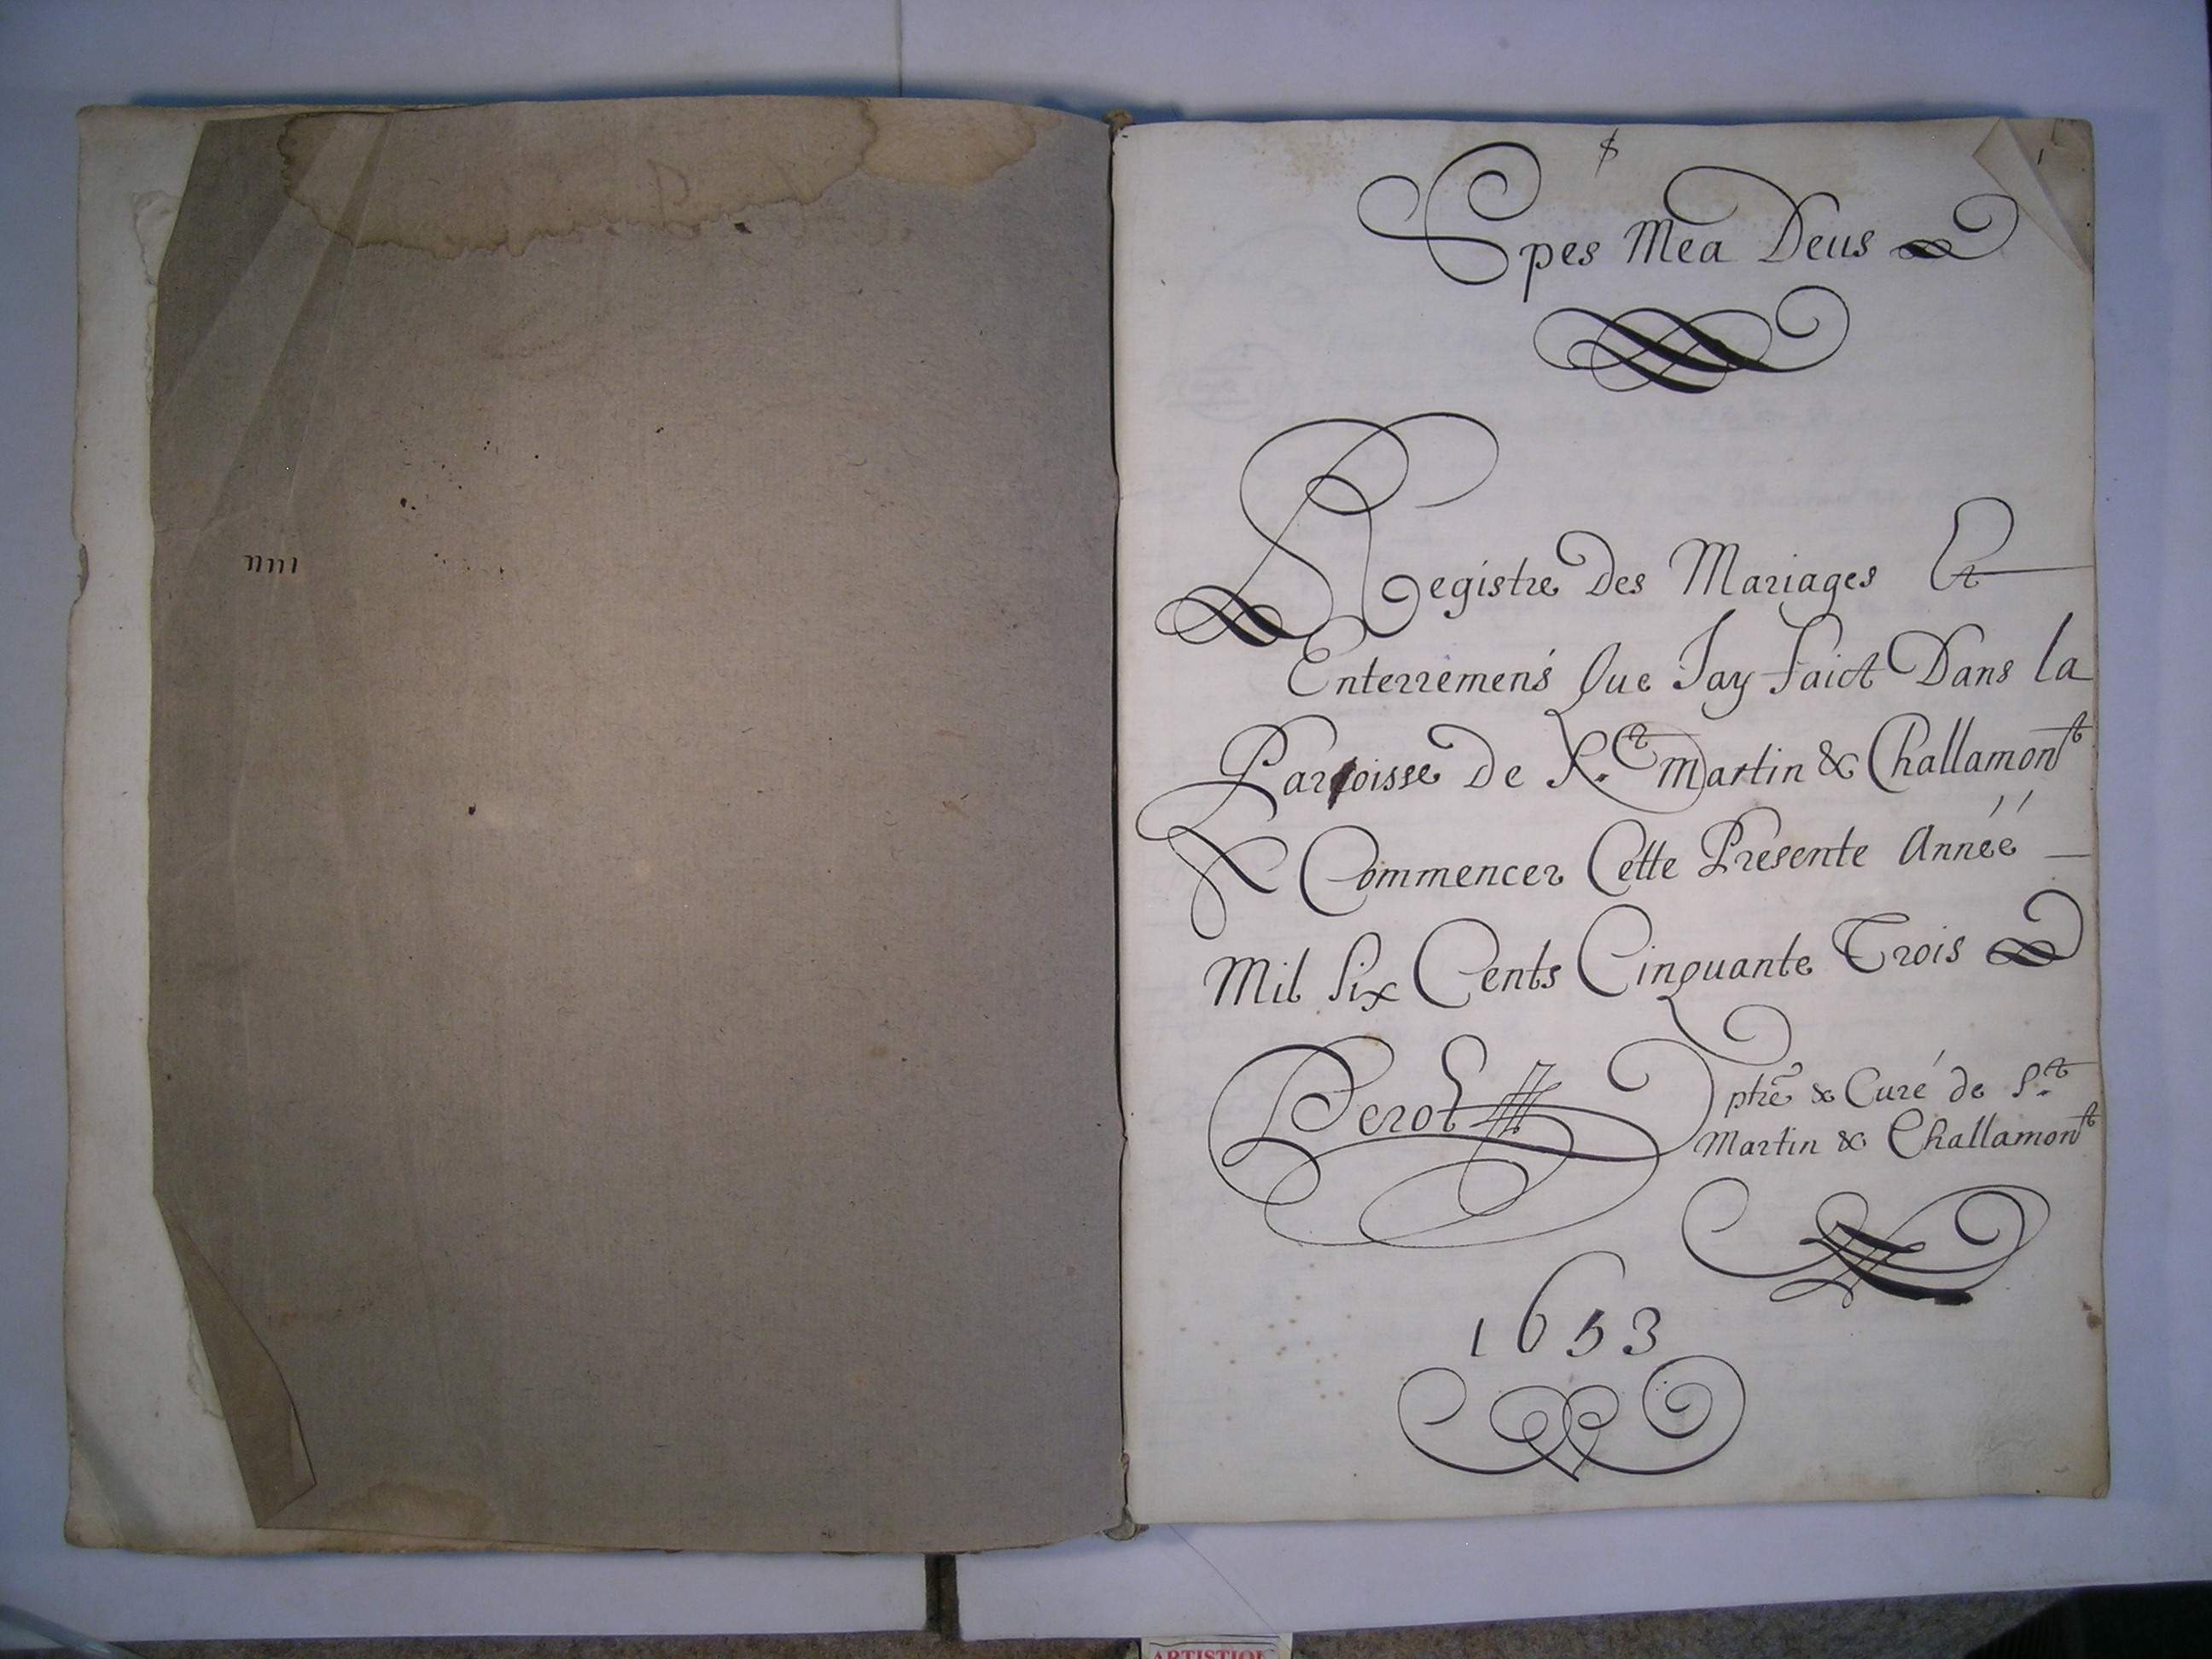 nnı
$
1
Spes Mea Deus
Registre Des Mariages Et
Enterremens Que Jay faict Dans la
Parroisse De S.ct Martin & Challamont
Commencer Cette Presente Année
Mil Six Cents Cinquante Trois
Perot
ptrẽ & Curé de S.ct
Martin & Challamont
1653
ARTISTIQU